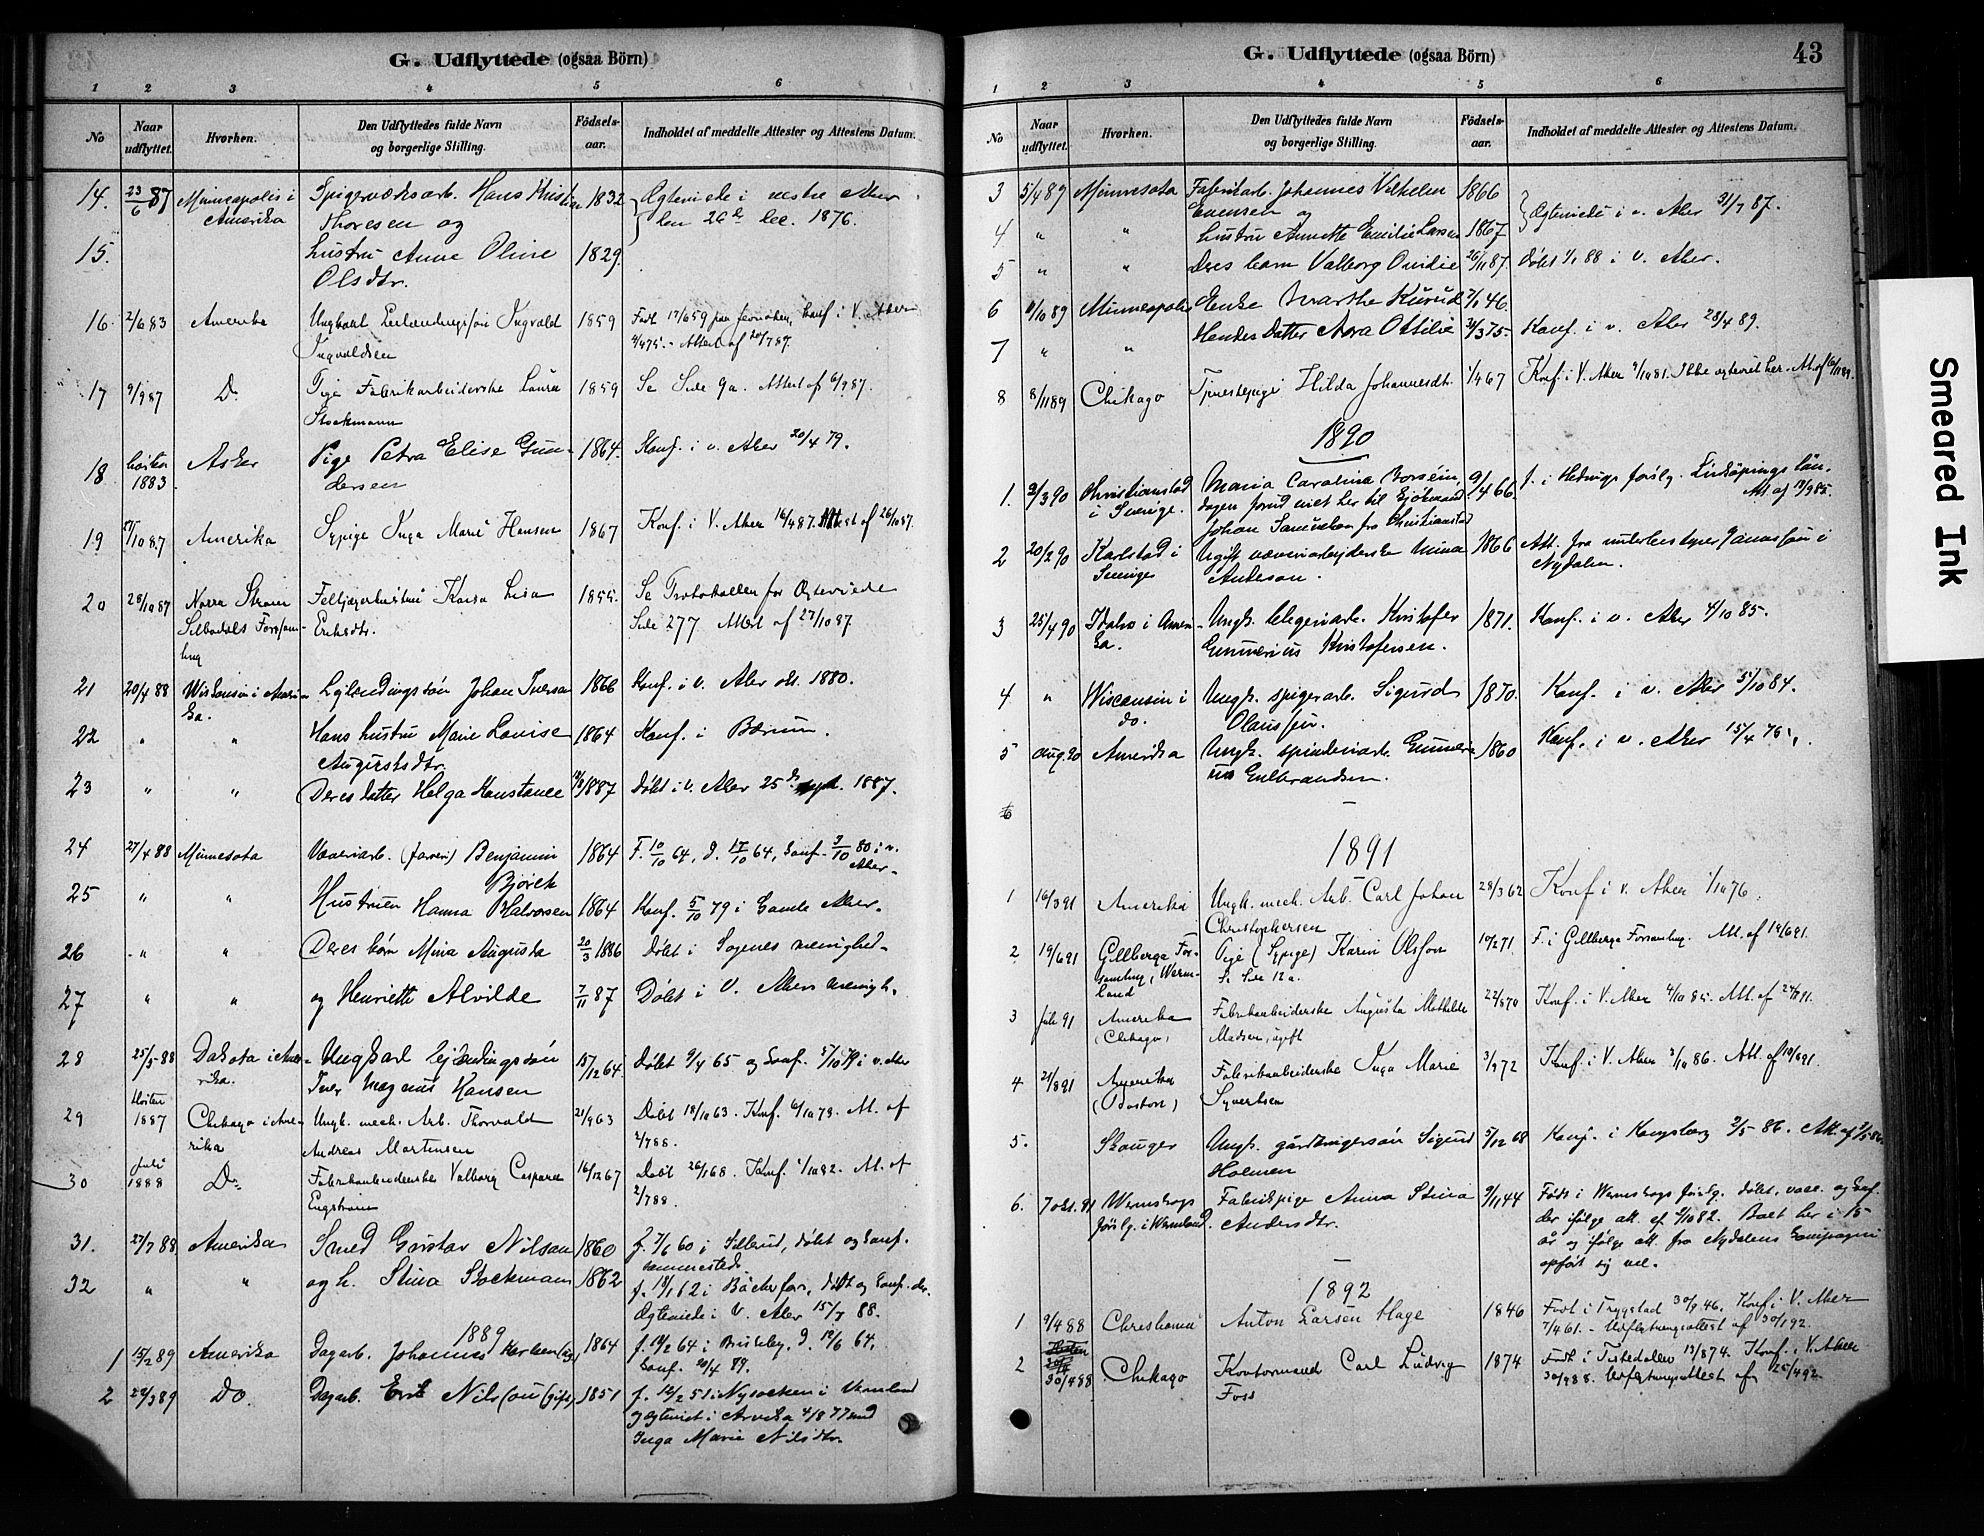 G. Udflyttede (ogsaa Börn)
1 2 3 4 5 6
No Naar udflyttet. Hvorhen. Den Udflyttedes fulde Navn og borgerlige Stilling. Födselsaar. Indholdet af meddelte Attester og Attestens Datum.
14. 23/6 87 Minneapolis i Spigerværksarb. Hans 1832 Ægteviede i vestre Aker
Amerika Thoresen og den 26de Dec. 1876.
15. hustru Anne Oline 1829.
Olsdtr.
16. 2/6 83 Amerika Ungkarl Ingvald 1859 Født 17/6 59 Konf i V. Aker
Ingvaldsen Attest af 20/7 87.
17 9/9 87 Do Pige Fabrikarbeiderske Laura 1859 Se Side 9a. Attest af 6/9 87.
Stockmann
18 høsten Asker Pige Petra Elise Gun- 1864. Konf. i v. Aker 20/4 79.
1883 dersen
19 /10 87 Amerika Sypige Inga Marie Hansen 1867 Konf. i V. Aker Attest af 26/10 87.
20 28/10 87 Norra Kaisa Lisa 1855. Se Protokollen for Ægteviede
Silbodals Forsam- Eriksdtr. Side 277 Attest af 27/10 87
ling
21 20/4 88 Wiskonsin i Ameri- Johan Iversen 1866 Konf. i V. Aker okt. 1880.
ka.
22 " " Hans hustru Marie Lovise 1864 Konf. i Bærum.
Augustsdtr.
23 " " Deres datter Helga Konstance 1887 Døbt i v. Aker 25de sept. 1887.
24 27/4 88 Minnesota Væveriarb. Benjamin 1864 F. 10/10 64, d. 17/10 64, konf. 3/10 80 i v.
Bjørck Aker.
25 " " Hustruen Hanna Halvorsen 1864 Konf. 5/10 79 i Gamle Aker.
26 " " Deres børn Mina Augusta 20/3 1886 Døbt i Sagenes menighed.
27 " " og Henriette Alvilde 7/11 87 Døbt i V. Akers menigh.
28 25/5 88 Dakota i Ame- Ungkarl Lejlændingssøn 15/12 64. Døbt 9/4 65 og konf. i v. Aker
rika. Iver Magnus Hansen
29 Høsten 1887 Chikago i Ame- Ungk. mech. Arb. Thorvald 21/9 63 Døbt 18/10 63. Konf. 6/10 78. At. af
rika Andreas Mortensen 2/7 88.
30 Juli 1888 Do Fabrikarbeiderske Valborg Caspara 16/12 67 Døbt 26/1 68. Konf. 1/10 82. At. af
Engstrøm 2/7 88.
31. 27/7 88 Amerika Smed Gustav Nilsson 1860 f. 7/6 60 i Sillerud, døbt og konf.
sammesteds.
32 " " og h. Stina Stockmann 1862 f. 18/1 62 i døbt og konf. der.
Ægteviede i V. Aker 15/7 88.
1889
1 15/2 89 Amerika Dagarb. Johannes 1864 f. 19/2 64 i d. 12/6 64,
konf. 20/4 79.
2 22/3 89 Do. Dagarb. Erik Nilsson (gift) 1851 f. 12/2 51 i Nysocken i Vermland
og ægteviet i Arvika 4/8 77 med
Inga Marie Nilsdtr.
G. Udflyttede (ogsaa Börn) 43
1 2 3 4 5 6
No Naar udflyttet. Hvorhen. Den Udflyttedes fulde Navn og borgerlige Stilling. Födselsaar. Indholdet af meddelte Attester og Attestens Datum.
3 5/4 89 Minnesota Fabrikarb. Johannes Vilhelm 1866
Evensen og Ægteviede i v. Aker 31/7 87.
4 " " hustru Annette Emilie Larsen 1867
5 " " Deres barn Valborg Ovidie 26/11 87. Døbt 1/1 88 i V. Aker.
6 11/10 89 Minneapolis Enke Marthe 46.
7 " " Hendes Datter Nora Ottilie 75. Konf. i v. Aker 28/4 89.
8 8/11 89 Chikago Tjenestepige Hilda Johannesdt. 1/4 67 Konf. i V. Aker Ikke ægteviet her. At. af 6/11 89.
1890
1. 3/3 90 Christianstad Maria Carolina 9/4 66 f. i Linköpings län.
i Sverige. At. af
Johan Samuelson fra Christianstad
2 20/2 90 Karlstad i Ugift væveriarbejderske Mina 1866 Att. fra i
Sverige Anderson. Nydalen.
3 25/4 90 Idaho i Ameri- Ungk. Kristofer 1871. Konf. i v. Aker 4/10 85.
ka. Gunnerius Kristofersen.
4 " Wisconsin i Ungk. spigerarb. Sigurd 1870. Konf. i v. Aker 5/10 84.
do. Olaussen.
5 Aug. 90 Amerika Ungk. spinderiarb. Gunneri- 1860 Konf. i v. Aker
us Gulbrandsen.
6 –
1891
1 16/3 91 Amerika Ungk. mech. Arb. Carl Johan 28/3 62 Konf i v. Aker 1/10 76.
Christophersen
2 19/6 91 Gillberga For- Pige (Sypige) Karin Olsson 10/2 71 F. i Gillberga Forsamling. At. af 19/6 91.
samling, Werm- S. Side 12a.
land
3 Juli 91 Amerika Fabrikarbeiderske Augusta Mathilde 22/8 70 Konf. i V. Aker 4/10 85. At. af
(Chikago) Madsen, ugift
4 21/8 91 Amerika Fabrikarbeiderske Inga Marie 3/9 72 Konf. i V. Aker 3/10 86. At. af
(Boston) Syvertsen
5. Skauger Ungk. gårdbrugersøn Sigurd 5/12 68 Konf. i Kongsberg 2/5 86. Att. af
Holmen
6. 7 okt. 91 Wermskogs Fabrikpige Anna Stina 9/11 44 Født i Wermskogs förslg. døbt, vacc. og konf.
förslg. i Wermland. Andersdtr. der ifølge att. af 2/10 82. Boet her i 15
år og ifølge att. fra Nydalens Compagni
opført sig vel.
1892
1 9/4 88 Christiania Anton Larsen Hage 1846 Født i Trygstad 30/9 46. Konf i V. Aker
7/4 61. - Udflytningsattest af 30/1 92.
2 30/4 88 Chikago Kontormand Carl Ludvig 1874 Født i Tistedalen 13/8 74. Konf. i V. Aker
Foss 30/9 88. Udflytningsattest af 25/4 92.
Smeared Ink